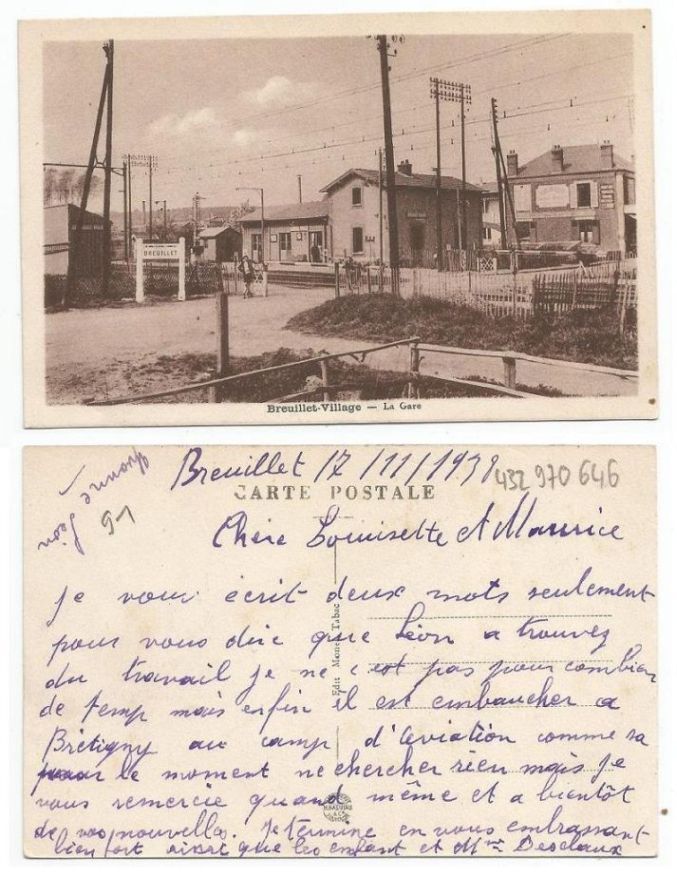 BREUILLET
Breuillet-Village — La Gare
Breuillet 17/11/1938
432 970 646
CARTE POSTALE
91
Léon
Chère Louisette et Maurice
je vous écrit deux mots seulement
pour vous dire que Léon a trouvez
du travail je ne c'est pas pour combien
de temp mais enfin il est embaucher a
Brétigny au camp d'aviation comme sa
pour le moment ne chercher rien mais je
vous remercie quand même et a bientôt
de vos nouvelles. Je termine en vous embrassant
bien fort ainsi que les enfant et Mme Desclaux
Edit. Tabac